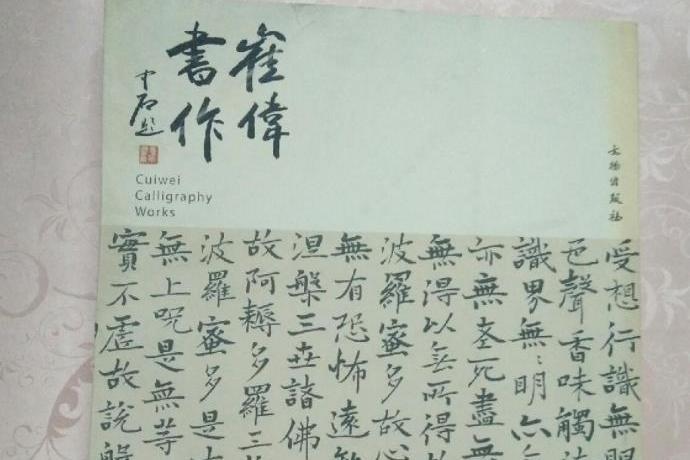 崔偉
書作
中石題
Cuiwei
Calligraphy
Works
文物出版社
受想行識無眼
色聲香味觸法
識界無無明亦
亦無老死盡無
無得以無所得故
波羅蜜多故心
無有恐怖遠
涅槃三世諸佛
故阿耨多羅三
波羅蜜多是
無上咒是無等
實不虛故說般